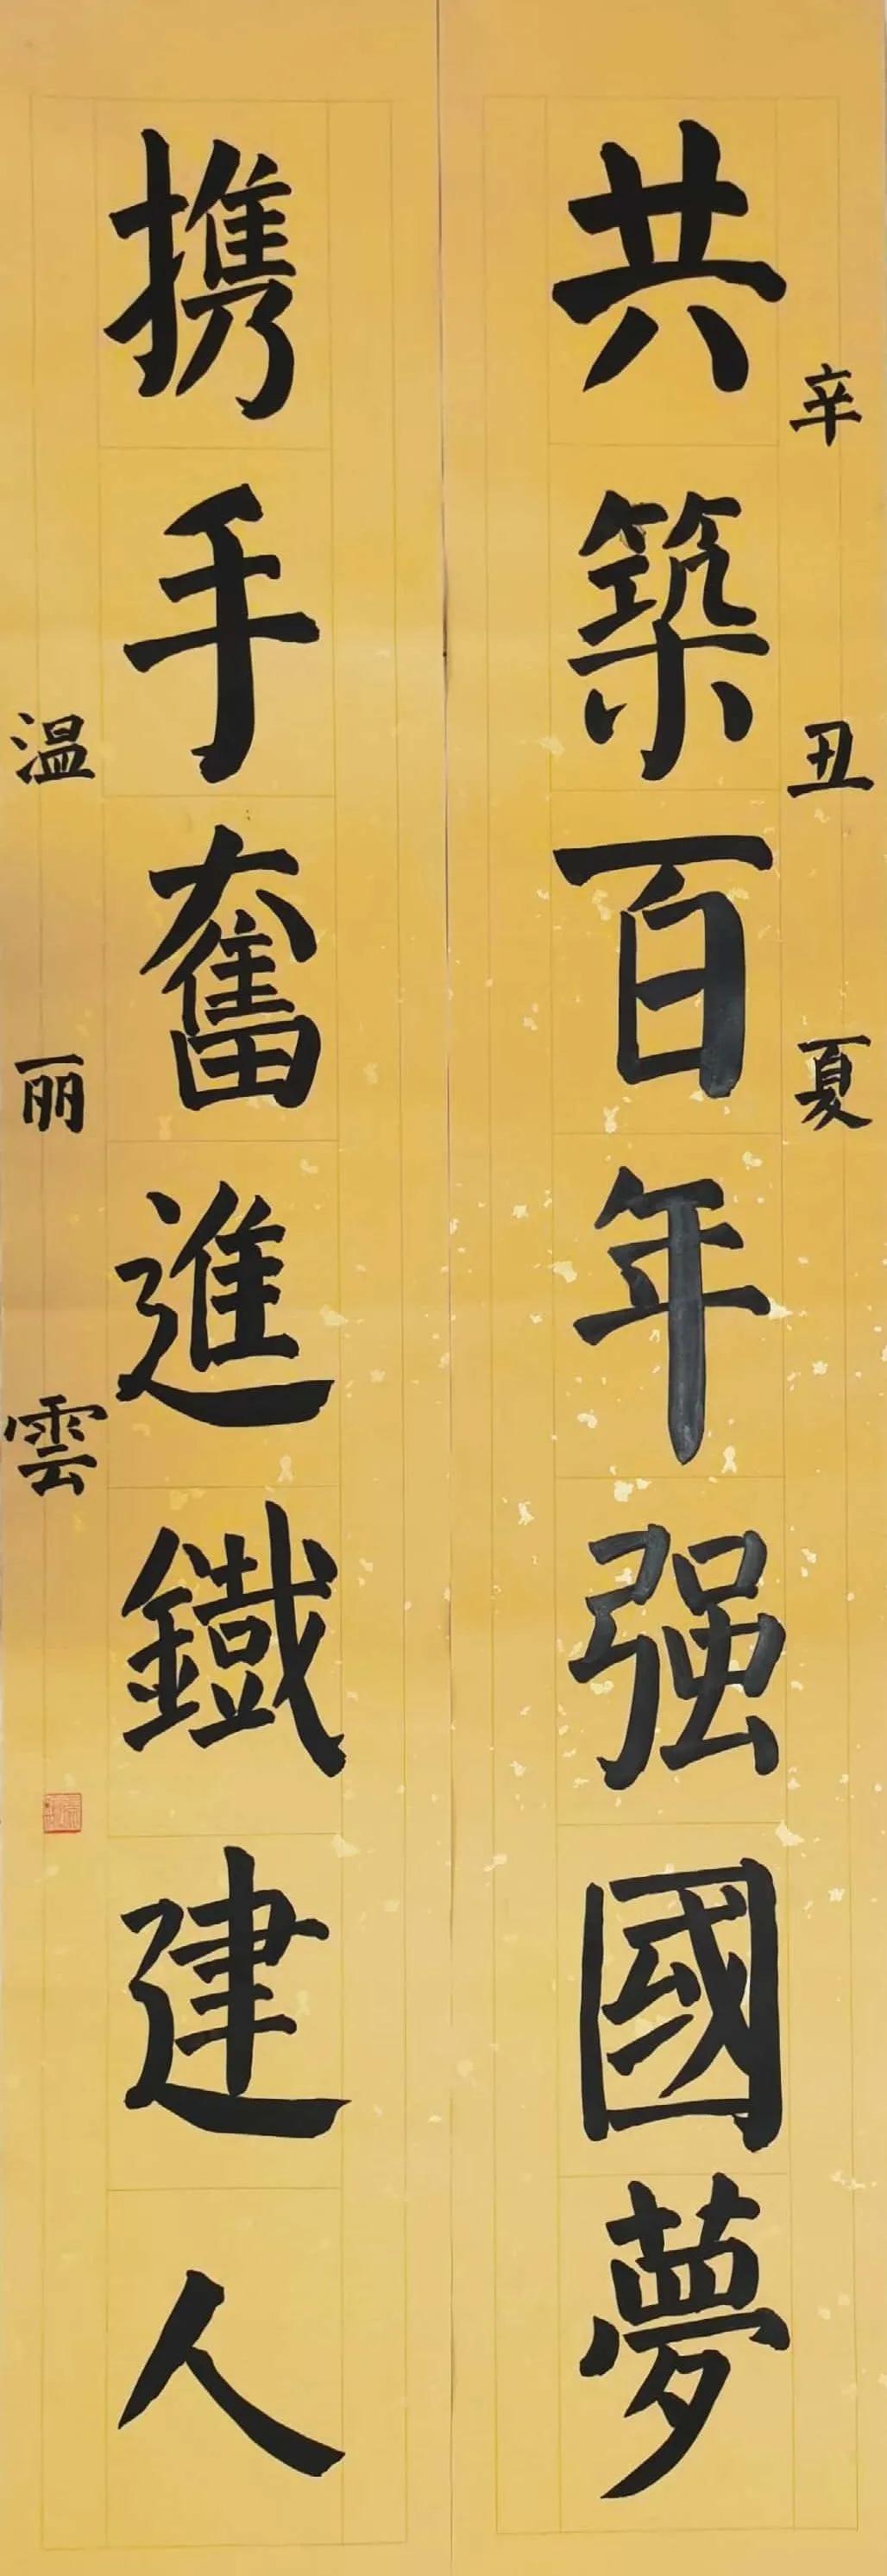 辛丑夏
共築百年强國夢
携手奮進鐵建人
温丽雲